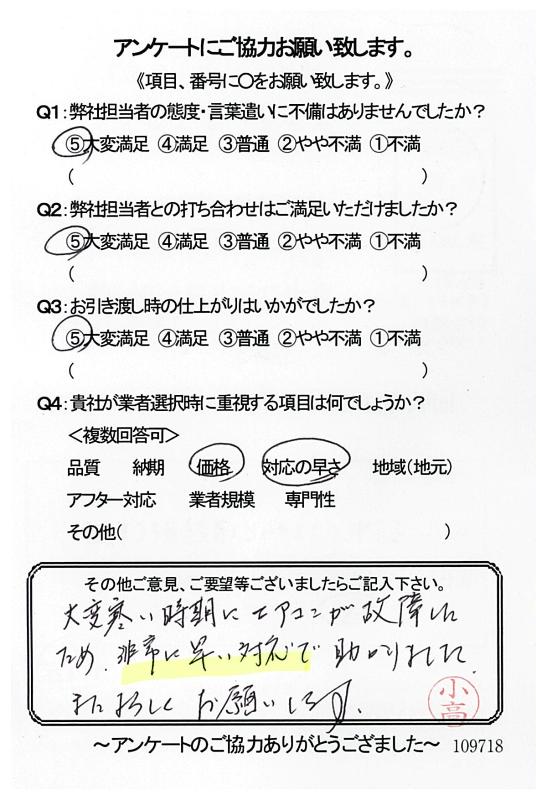 アンケートにご協力お願い致します。
《項目、番号に〇をお願い致します。》
Q1:弊社担当者の態度・言葉遣いに不備はありませんでしたか?
⑤大変満足 ④満足 ③普通 ②やや不満 ①不満
( )
Q2:弊社担当者との打ち合わせはご満足いただけましたか?
⑤大変満足 ④満足 ③普通 ②やや不満 ①不満
( )
Q3:お引き渡し時の仕上がりはいかがでしたか?
⑤大変満足 ④満足 ③普通 ②やや不満 ①不満
( )
Q4:貴社が業者選択時に重視する項目は何でしょうか?
<複数回答可>
品質 納期 価格 対応の早さ 地域(地元)
アフター対応 業者規模 専門性
その他( )
その他ご意見、ご要望等ございましたらご記入下さい。
大変寒い時期にエアコンが故障した
ため、非常に早い対応で助かりました。
またよろしくお願いします。
小高
~アンケートのご協力ありがとうござました~ 109718